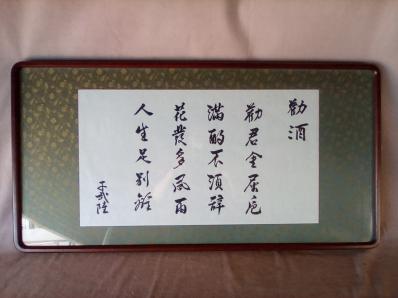 勧酒
勧君金屈卮
満酌不須辞
花發多風雨
人生足別離
于武陵